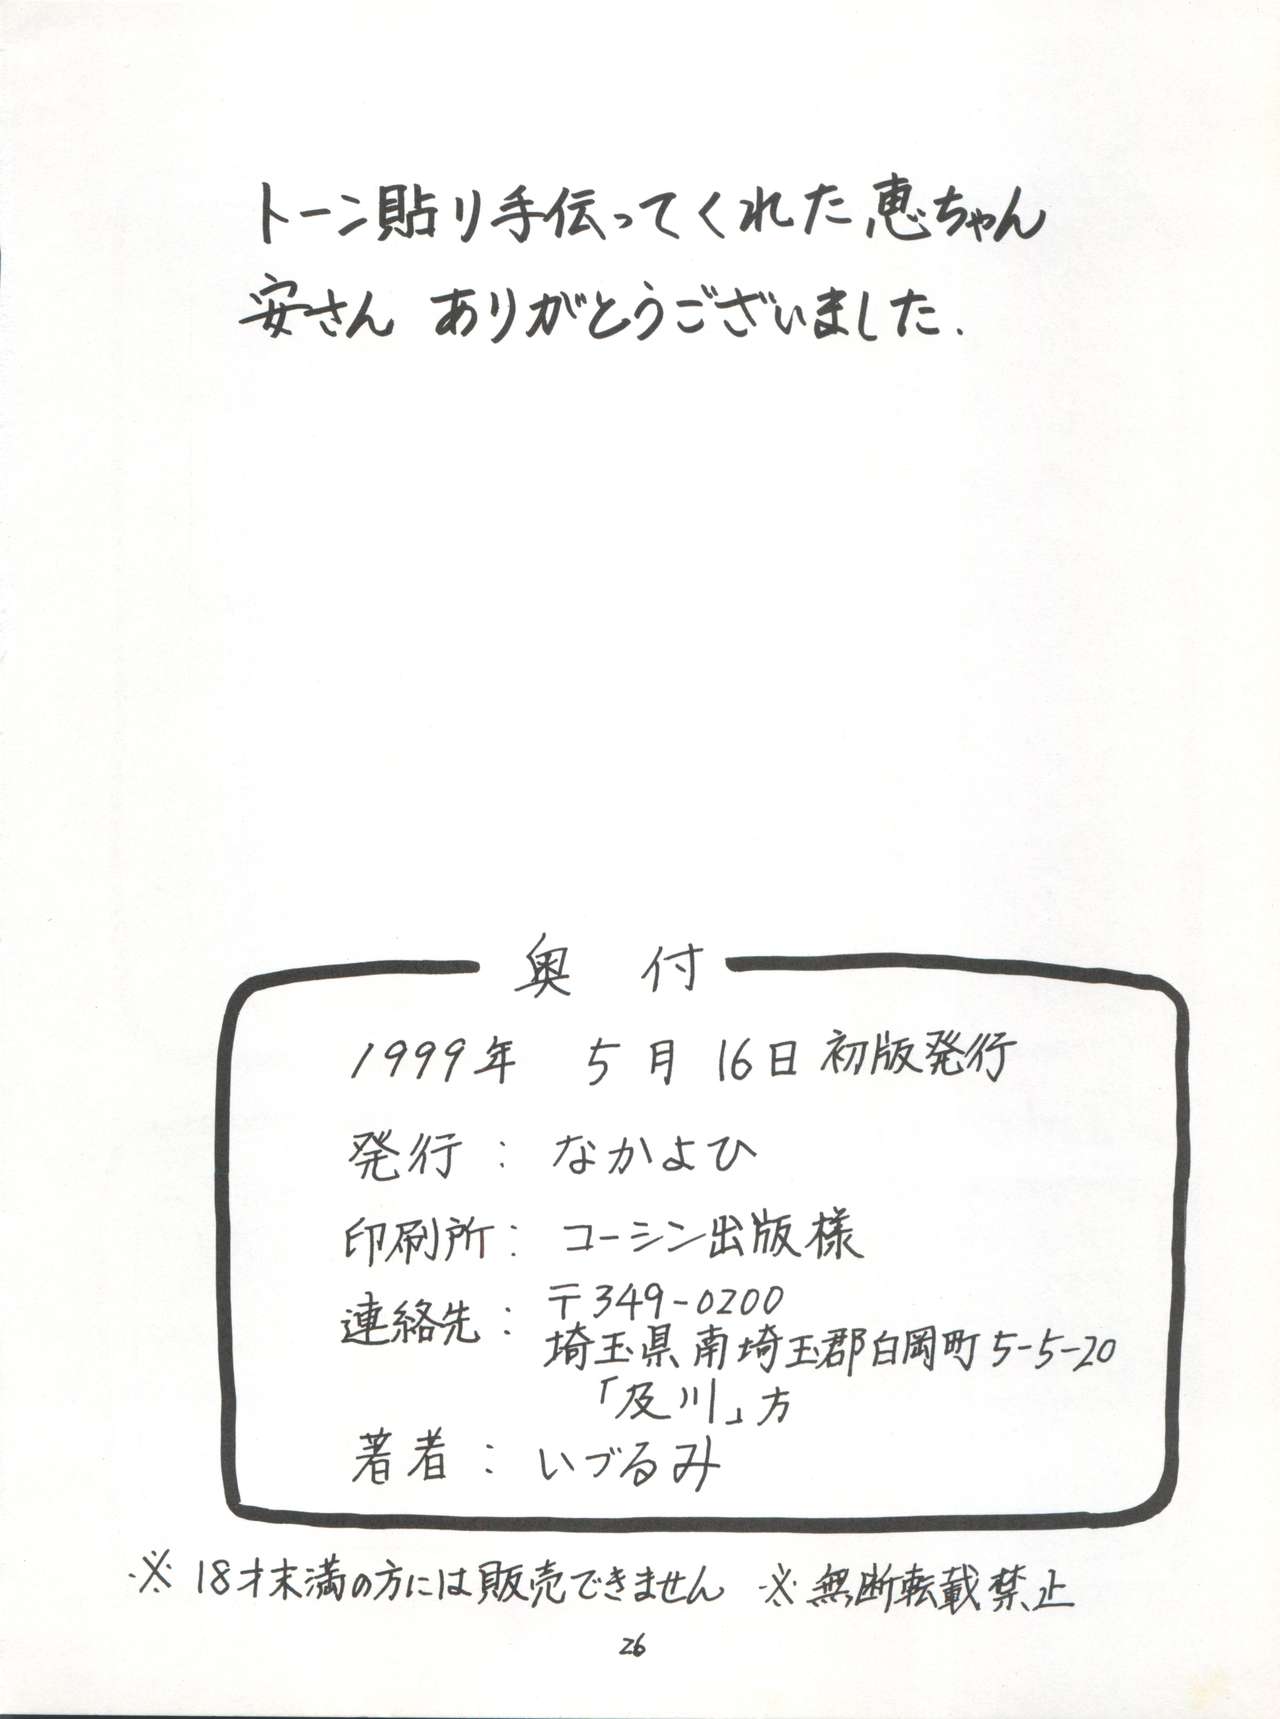 トーン貼り手伝ってくれた恵ちゃん
安さん ありがとうございました.
奥 付
1999年 5月 16日 初版発行
発行 : なかよひ
印刷所 : コーシン出版様
連絡先 : 〒349-0200
埼玉県南埼玉郡白岡町5-5-20
「及川」方
著者 : いづるみ
※18才末満の方には販売できません ※無断転載禁止
26